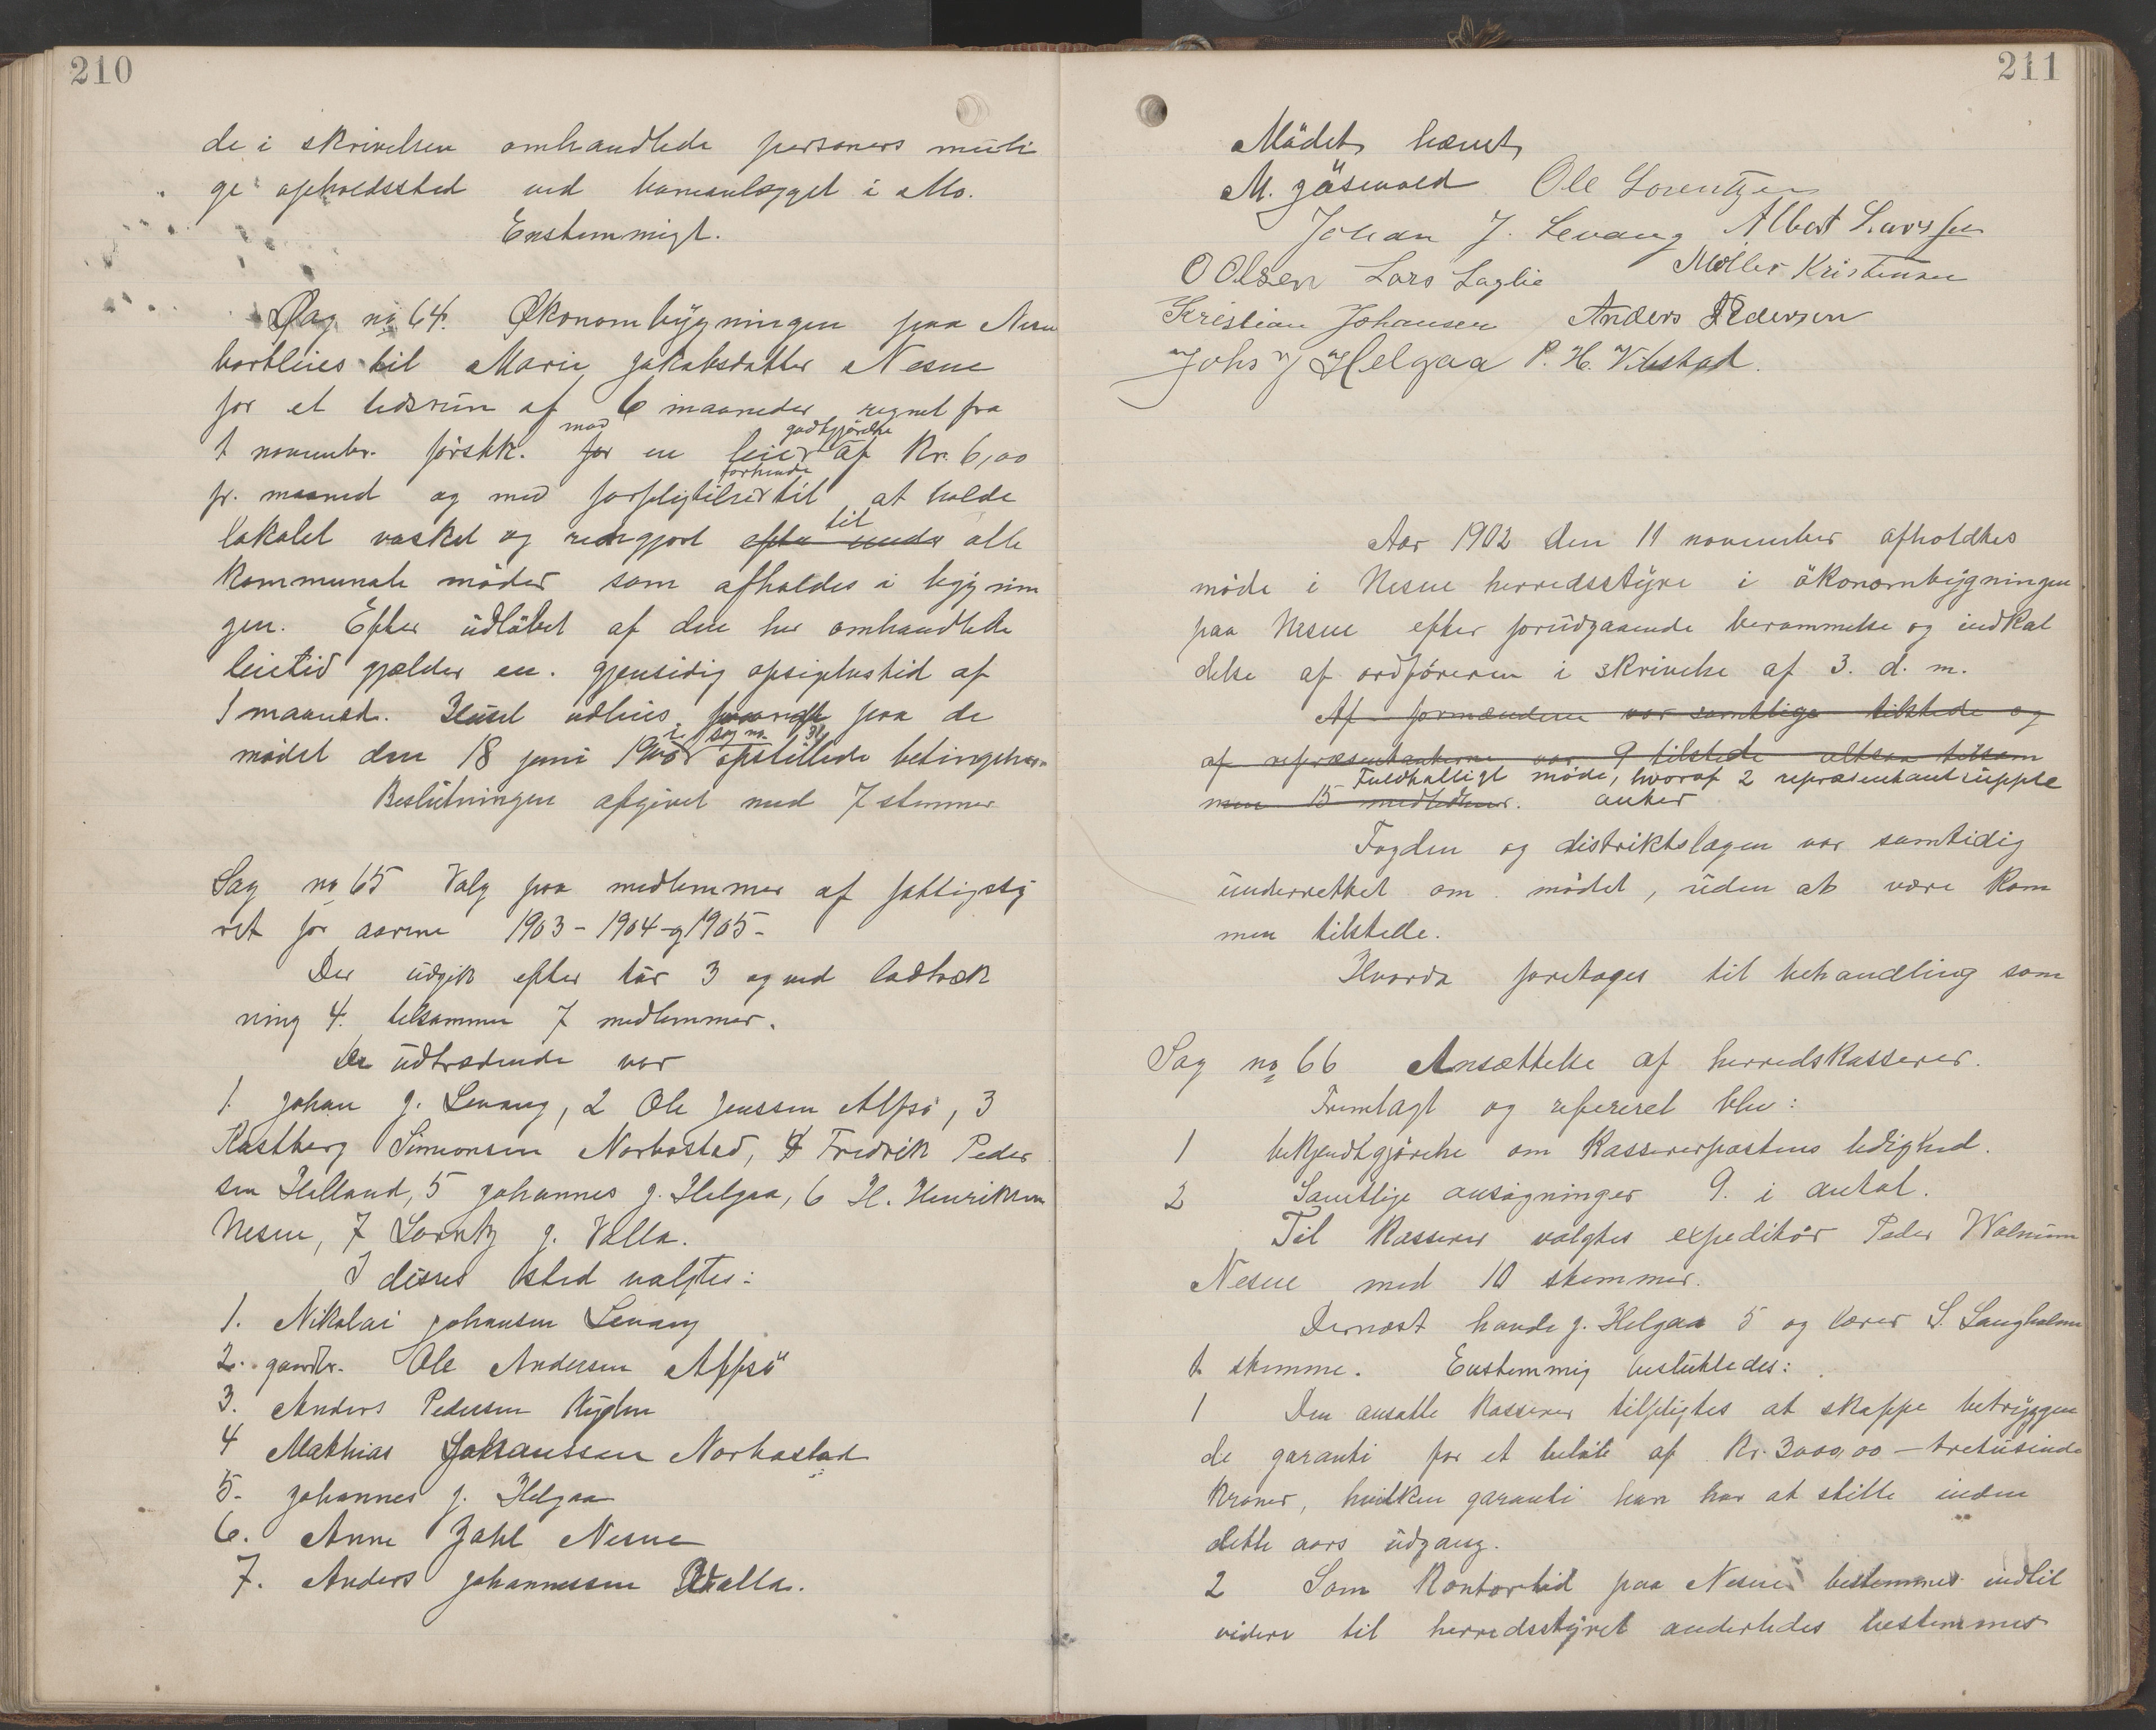 210
de i skrivelsen omhandlede personers muli
ge opholdssted ved baneanlægget i Mo.
Enstemmigt.
Sag no 64. Økonombygningen paa Nesne
bortleies til Marie Jakobsdatter Nesne
for et tidsrum af 6 maaneder, regnet fra
1 november førstk. for mod en leie godtgjørelse af Kr. 6,00
pr. maaned og med forpligtilse forhende til at holde
lokalet vasket og rengjort efter under til alle
kommunale møder som afholdes i bygnin
gen. Efter udløbet af den her omhandlede
leietid gjælder en gjensidig opsigelsestid af
1 maaned. Huset udleies paa de
mødet den 18 juni 1900 i sag no 31 opstillede betingelser.
Beslutningen afgivet med 7 stemmer
Sag no 65 Valg paa medlemmer af fattigsty
ret for aarene 1903-1904-og 1905-
Der udgik efter tur 3 og ved lodtræk
ning 4. tilsammen 7 medlemmer.
De udtrædende var
1. Johan J. Levang, 2 Ole Jenssen Alfsø, 3
Kastberg Simonsen Norbostad, 4 Fredrik Peder
sen Helland, 5 Johannes J. Helgaa, 6 H. Henriksen
Nesne, 7 Lorntz J. Valla.
I disses sted valgtes:
1. Nikolai Johansen Levang
2. gaardbr. Ole Andersen Alfsø
3. Anders Pedersen Ryglen
4 Mathias Johanssen Norbostad
5. Johannes J. Helgaa
6. Anne Zahl Nesne
7. Anders Johannessen Valla.
211
Mødet hævet
M. Jøsevold Ole Lorentzen
Johan J. Levang Albert Larssen
O Olsen Lars Laglie Møller Kristensen
Kristian Johansen Anders Pedersen
Johs J Helgaa P. H. Vikstad.
Aar 1902 den 11 november afholdtes
møde i Nesne herredsstyre i økonombygningen
paa Nesne efter forudgaaende berammelse og indkal
delse af ordføreren i skrivelse af 3. d. m.
Af formændene var samtlige tilstede og
af repræsentanterne var 9 tilstede altsaa tilsam
men 15 medlemmer. Fuldtalligt møde, hvoraf 2 repræsentantsupple
anter
Fogden og distriktslægen var samtidig
underrettet om mødet, uden at være kom
men tilstede.
Hvorda foretages til behandling som
Sag no 66 Ansættelse af herredskasserer.
Fremlagt og refereret blev:
1 bekjendtgjørelse om kassererpostens ledighed.
2 Samtlige ansøgninger 9. i antal.
Til kasserer valgtes expeditør Peder Walnum
Nesne med 10 stemmer.
Dernæst havde J. Helgaa 5 og lærer S. Langholm
1 stemme. Enstemmig besluttedes:
1 Den ansatte kasserer tilpligtes at skaffe betryggen
de garanti for et beløb af Kr. 3000,00 – tretusinde
kroner, hvilken garanti han har at stille inden
dette aars udgang.
2 Som kontortid paa Nesne bestemmes indtil
videre til herredsstyret anderledes bestemmes